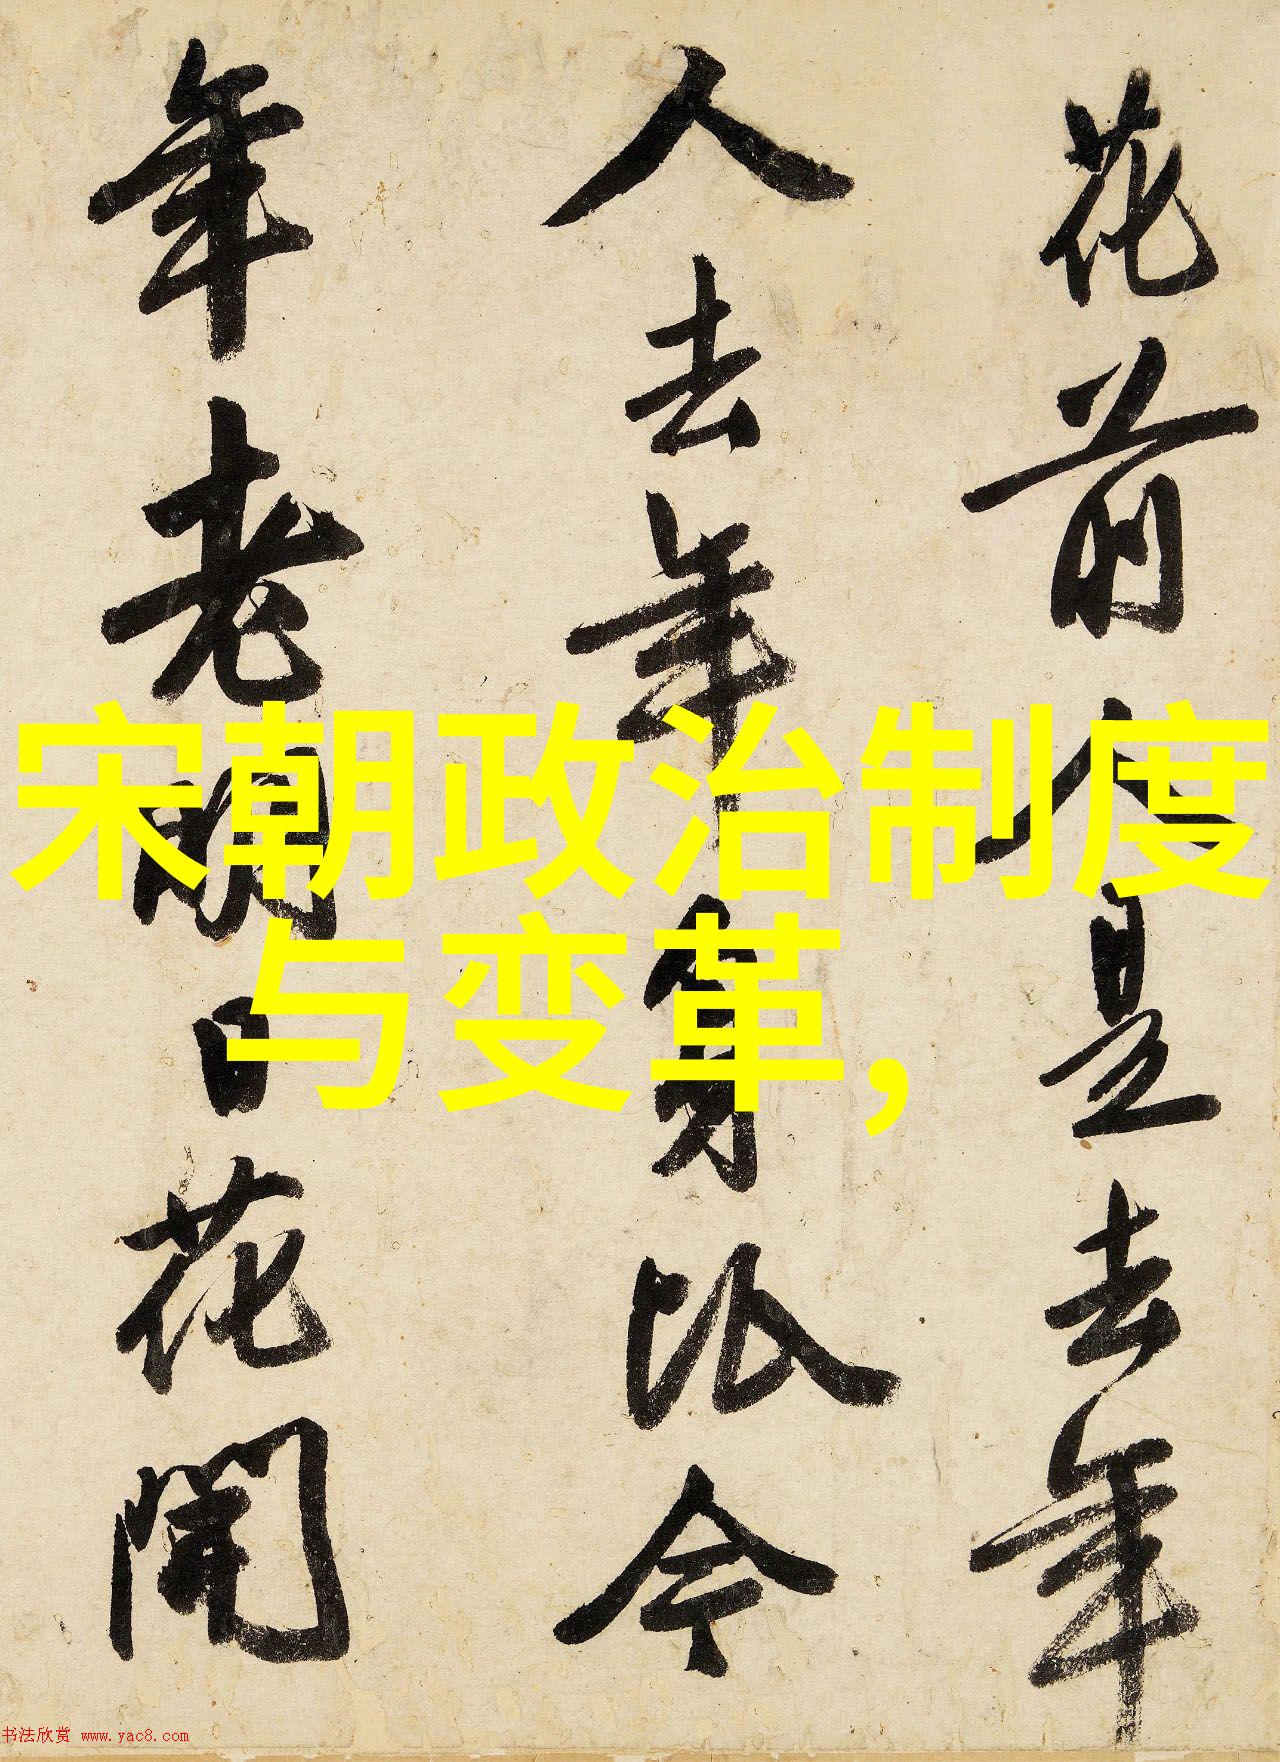 花前人是去年
人去年身比今
年老明日花開
宋朝政治制度
与变革,
书法欣赏 www.yac8.com